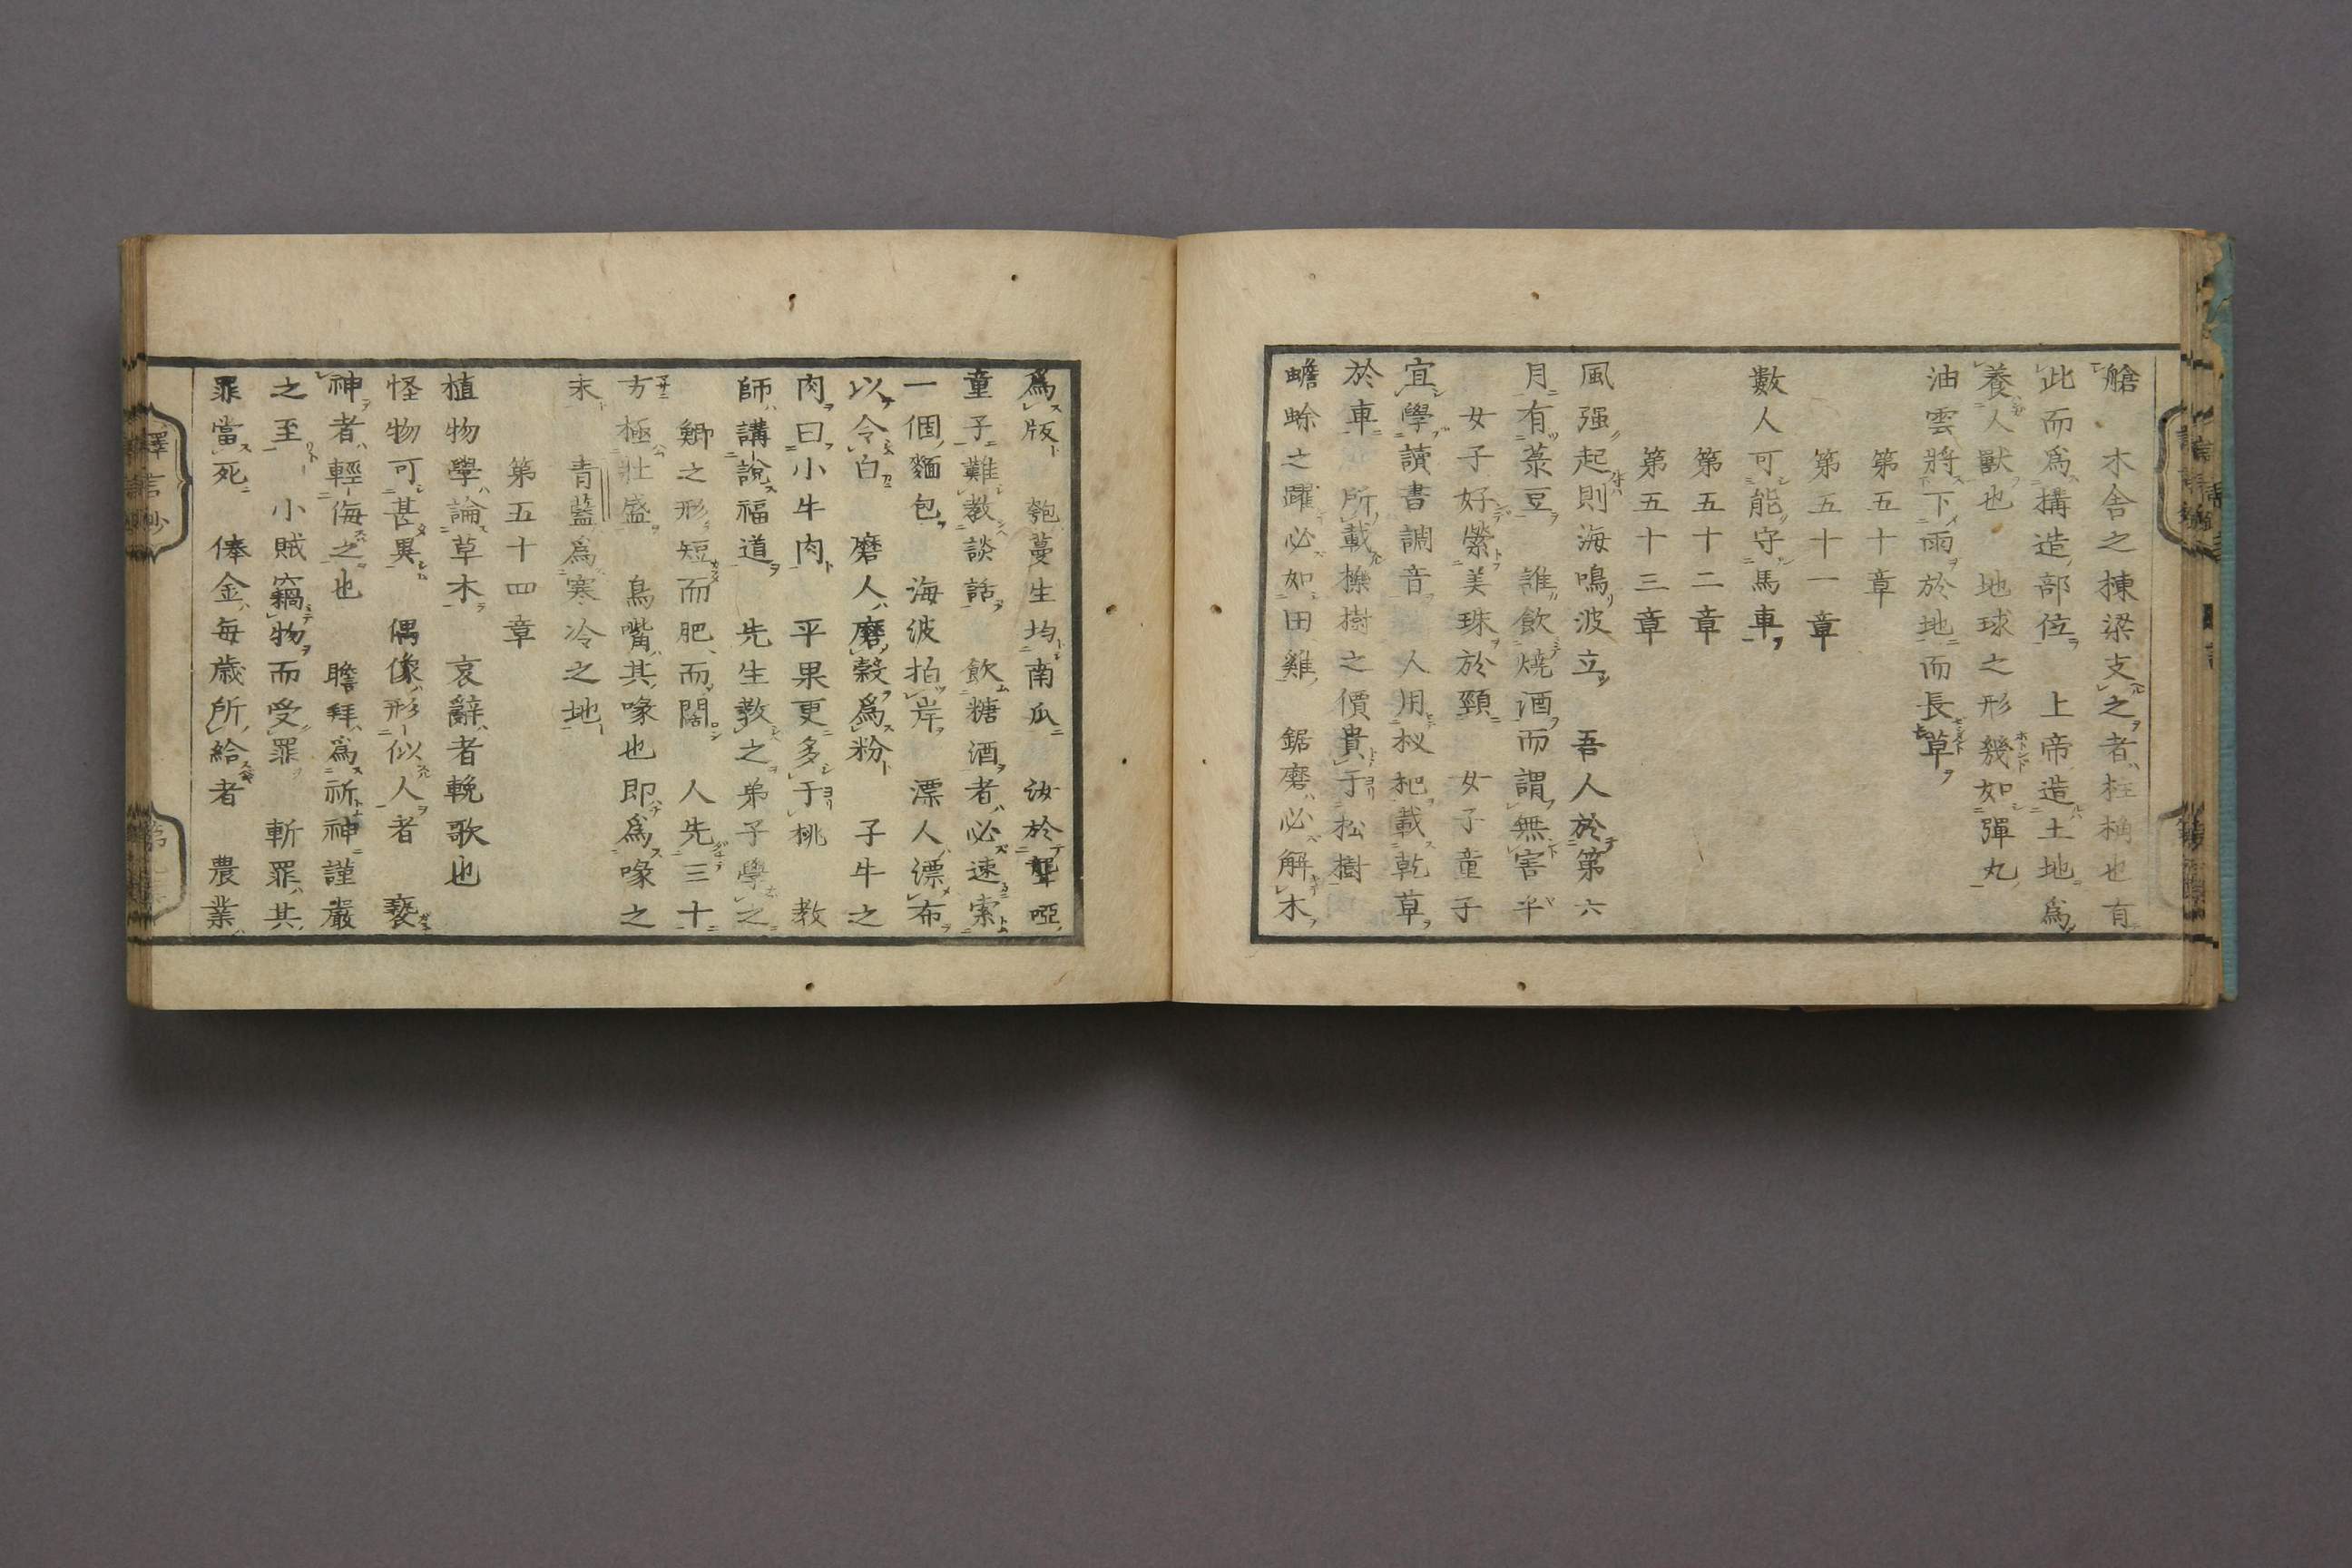 艙　木舎之棟梁支之者柱桷也有
此而為構造部位　上帝造土地為
養人獣也　地球之形幾如彈丸
油雲將下雨於地而長草
第五十章
第五十一章
數人可能守馬車
第五十二章
第五十三章
風强起則海鳴波立　吾人於第六
月有菉豆　誰飲燒酒而謂無害乎
女子好縈美珠於頸　女子童子
宜學讀書調音　人用杈把載乾草
於車　所載檪樹之價貴于松樹
蟾蜍之躍必如田雞　鋸磨必解木
為版　匏蔓生均南瓜　汝於聾啞
童子難教談話　飲糖酒者必速索
一個麵包　海波拍岸　漂人漂布
以令白　磨人磨穀為粉　子牛之
肉曰小牛肉　平果更多于桃　教
師講說福道　先生教之弟子學之
鯽之形短而肥而闊　人先三十
方極壯盛　鳥嘴其喙也即為喙之
末　青藍為寒冷之地
第五十四章
植物學論草木　哀辭者輓歌也
怪物可甚異　偶像形似人者　褻
神者輕侮之也　瞻拜為祈神謹嚴
之至　小賊竊物而受罪　斬罪其
罪當死　俸金每歳所給者　農業